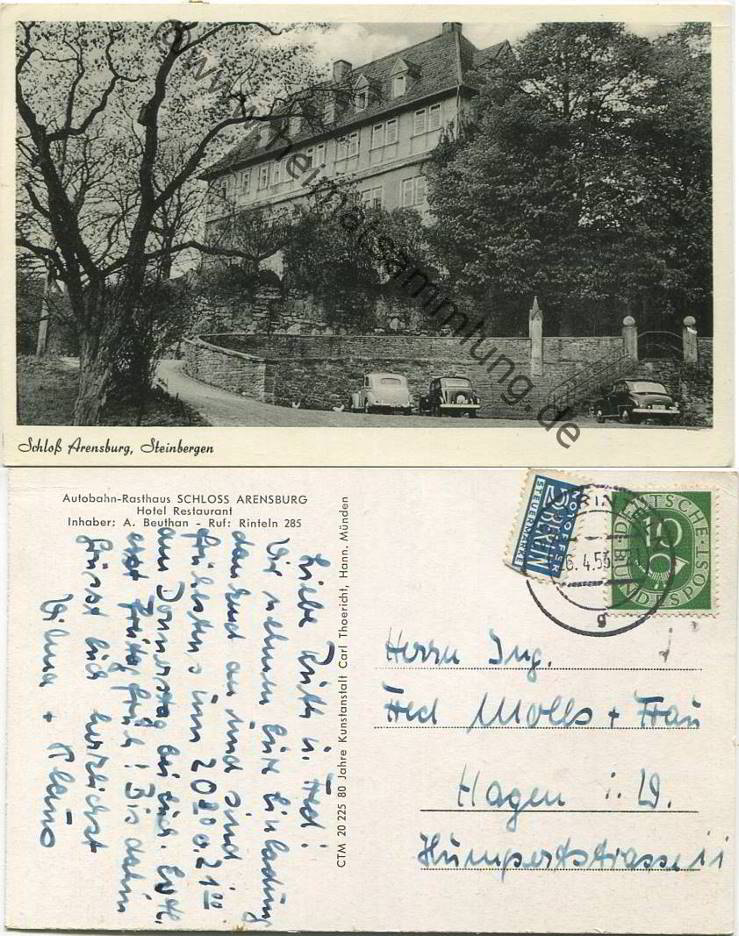 www.heimatsammlung.de
Schloß Arensburg, Steinbergen
Autobahn-Rasthaus SCHLOSS ARENSBURG
Hotel Restaurant
Inhaber: A. Beuthan - Ruf: Rinteln 285
CTM 20 225 80 Jahre Kunstanstalt Carl Thoericht, Hann. Münden
Liebe Ruth u. Fred!
Wir nehmen Eure Einladung
dankend an und sind
frühstens um 20 00 o. 21 00
am Donnerstag bei Euch. Evtl.
erst Freitag früh! Bis dahin
grüsst Euch herzlichst
Wilma + Klaus
NOTOPFER
2 BERLIN
STEUERMARKE
RINTELN
26.4.53
g
DEUTSCHE
BUNDESPOST
10
Herrn Ing.
Fred Molls + Frau
Hagen i. W.
Humpertstrasse 11